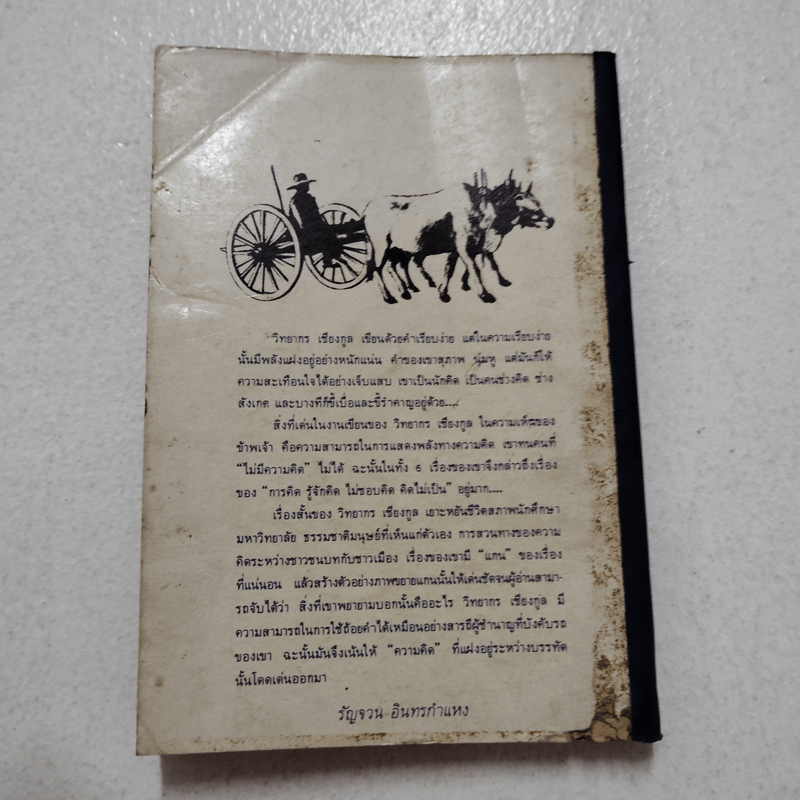 วิทยากร เชียงกูล เขียนด้วยคำเรียบง่าย แต่ในความเรียบง่าย
นั้นมีพลังแฝงอยู่อย่างหนักแน่น คำของเขาสุภาพ นุ่มหู แต่มันก็ให้
ความสะเทือนใจได้อย่างเจ็บแสบ เขาเป็นนักคิด เป็นคนช่างคิด ช่าง
สังเกต และบางทีก็ขี้เบื่อและขี้รำคาญอยู่ด้วย....
สิ่งที่เด่นในงานเขียนของ วิทยากร เชียงกูล ในความเห็นของ
ข้าพเจ้า คือความสามารถในการแสดงพลังทางความคิด เขาทนคนที่
“ไม่มีความคิด” ไม่ได้ ฉะนั้นในทั้ง 6 เรื่องของเขาจึงกล่าวถึงเรื่อง
ของ “การคิด รู้จักคิด ไม่ชอบคิด คิดไม่เป็น” อยู่มาก....
เรื่องสั้นของ วิทยากร เชียงกูล เยาะหยันชีวิตสภาพนักศึกษา
มหาวิทยาลัย ธรรมชาติมนุษย์ที่เห็นแก่ตัวเอง การสวนทางของความ
คิดระหว่างชาวชนบทกับชาวเมือง เรื่องของเขามี “แกน” ของเรื่อง
ที่แน่นอน แล้วสร้างตัวอย่างภาพขยายแกนนั้นให้เด่นชัดจนผู้อ่านสามา-
รถจับได้ว่า สิ่งที่เขาพยายามบอกนั้นคืออะไร วิทยากร เชียงกูล มี
ความสามารถในการใช้ถ้อยคำได้เหมือนอย่างสารถีผู้ชำนาญที่บังคับรถ
ของเขา ฉะนั้นมันจึงเน้นให้ “ความคิด” ที่แฝงอยู่ระหว่างบรรทัด
นั้นโดดเด่นออกมา
รัญจวน อินทรกำแหง